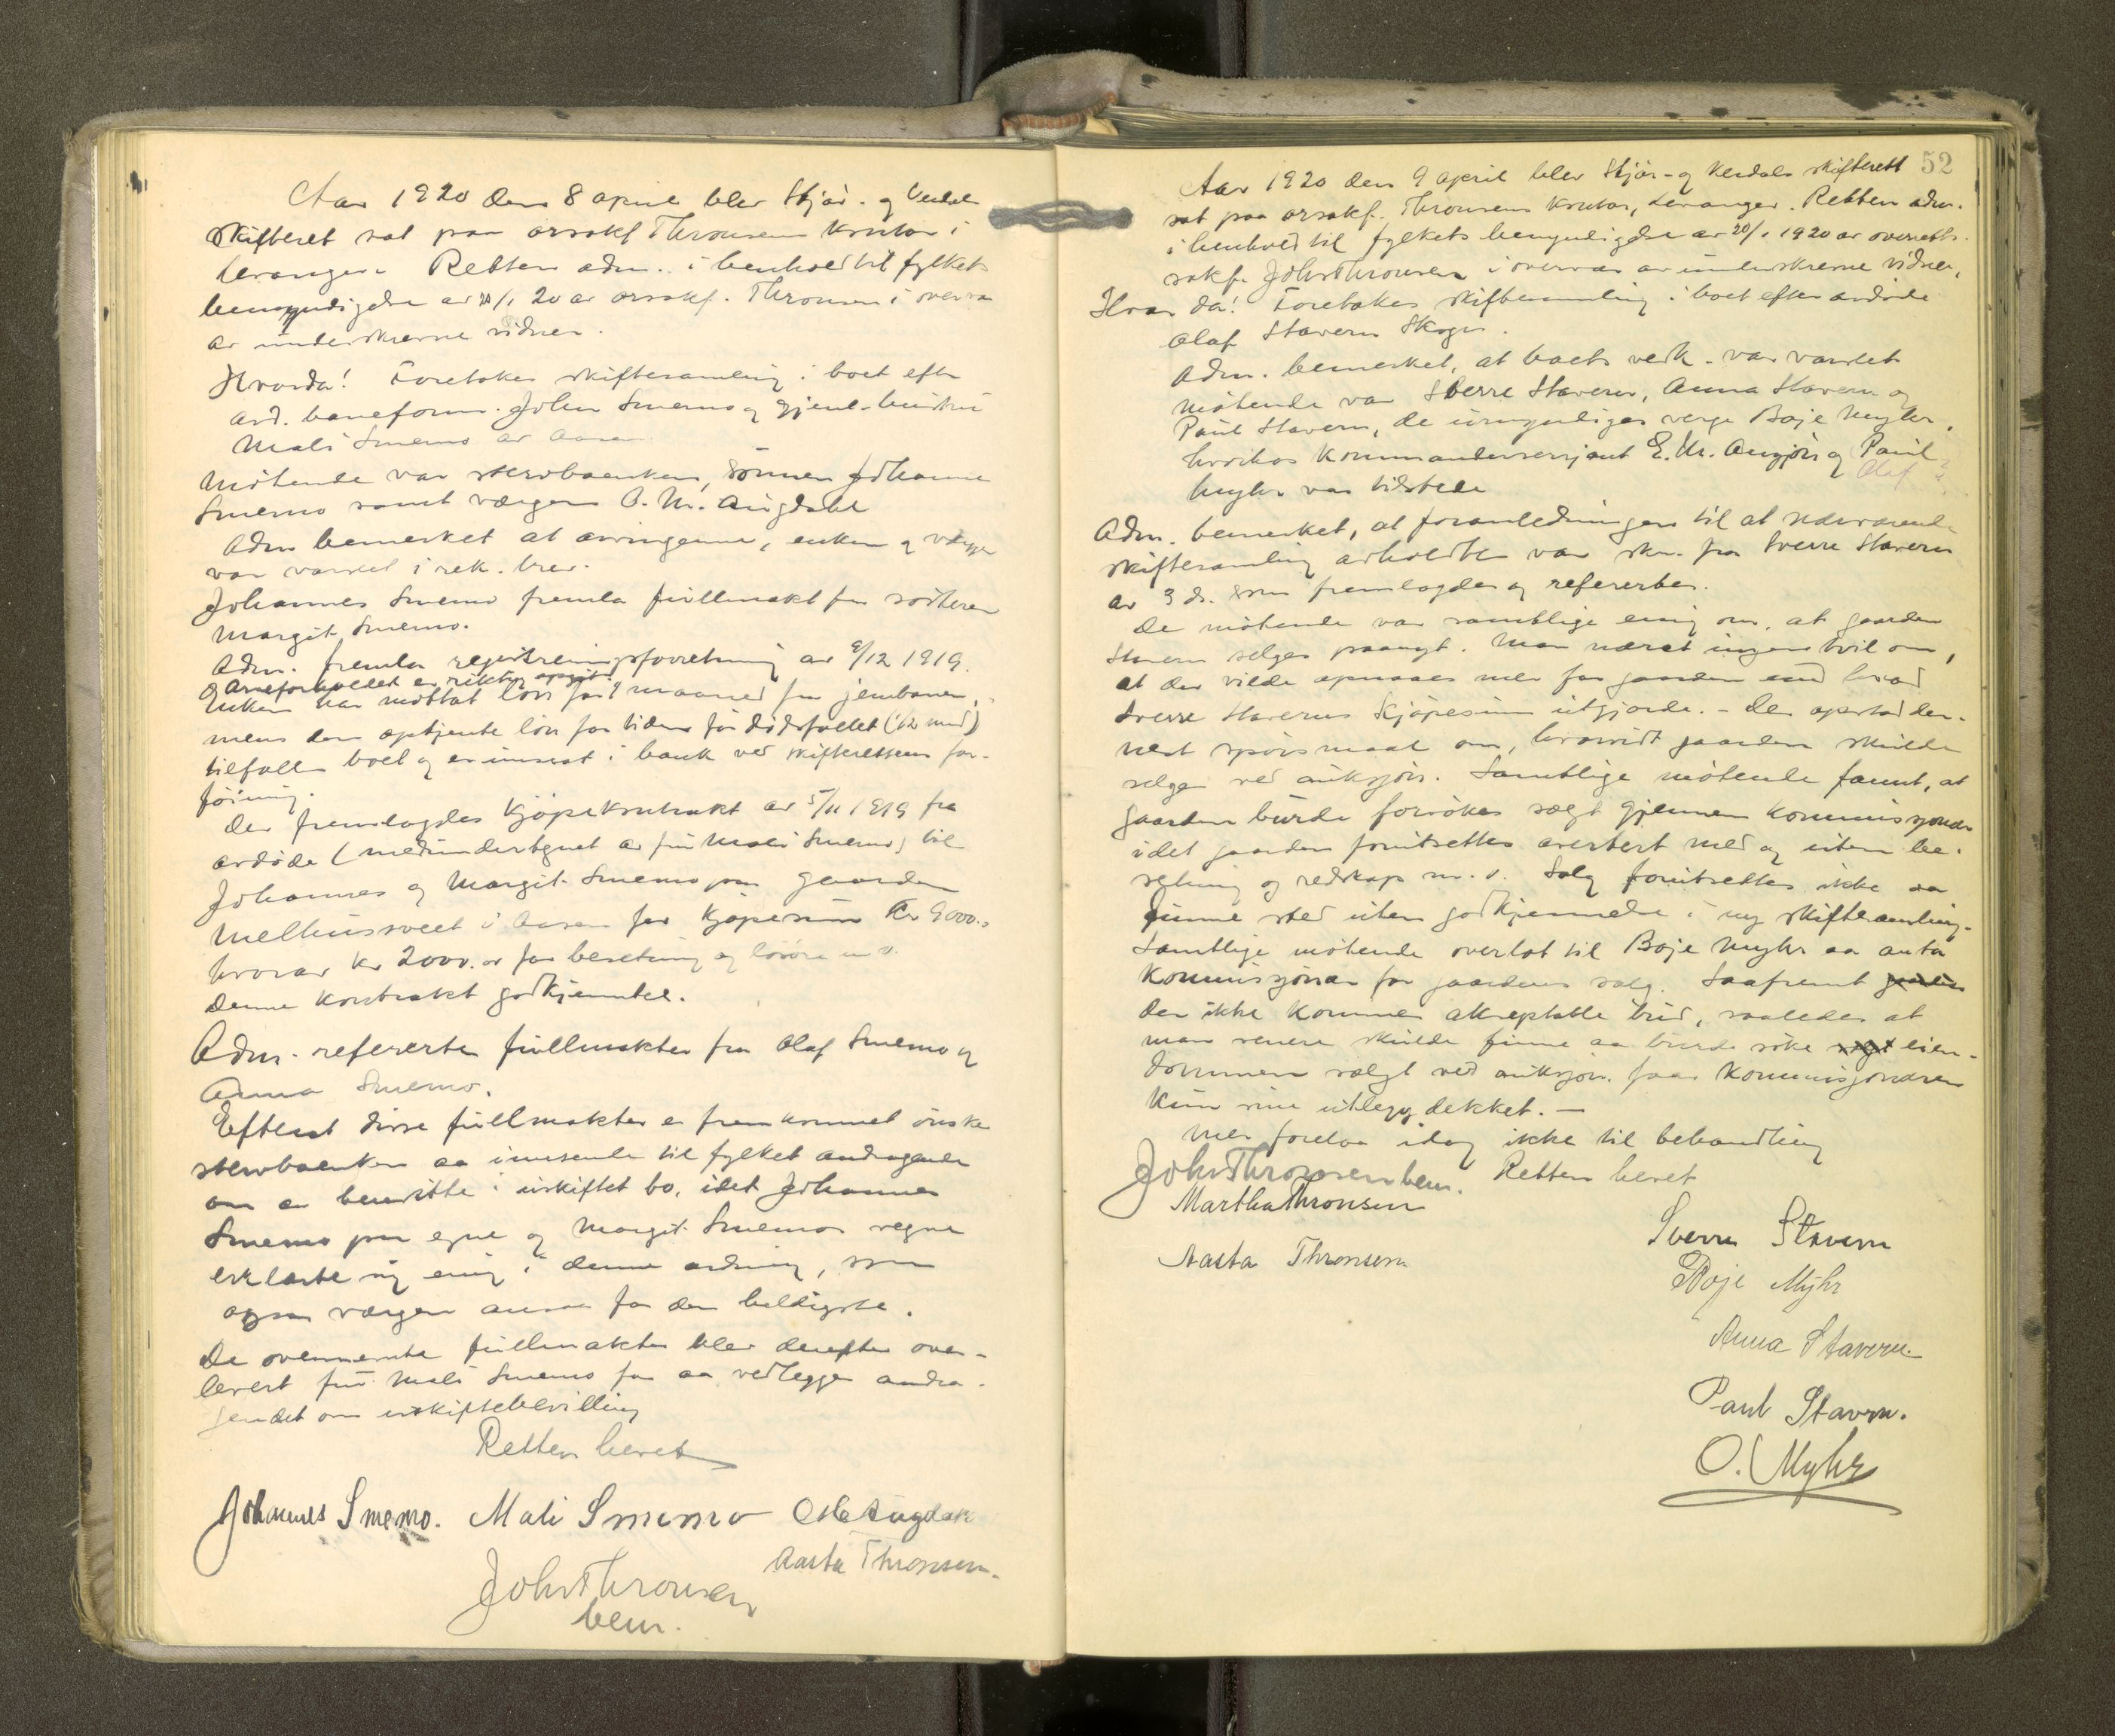 Aar 1920 den 8 april blev Stjør- og Verdals
skifteret sat paa orsakf. Thronsens kontor i
Levanger. Retten adm. i henhold til fylkets
bemyndigelse av 20/1 20 av orsakf. Thronsen i overvær
av underskrevne vidner.
Hvorda! Foretokes skiftesamling i boet efter
avd. baneform. John Smemo og gjenl. hustru
Mali Smemo av Aasen
Møtende var stervboenken, sønnen Johannes
Smemo samt værgen O. M. Augdahl
Adm bemerket at arvingerne, enken og værgen
var varslet i rek. brev.
Johannes Smemo fremla fullmakt fra søsteren
Margit Smemo.
Adm. fremla registreringsforretning av 9/12 1919.
og arveforholdet er riktig opgit.
Enken har mottat løn for 1 maaned fra jernbanen,
mens den optjente løn for tiden før dødsfallet (1/2 mnd)
tilfaller boet og er innsat i bank ved skifterettens for-
føining.
Der fremlagdes kjøpekontrakt av 5/11 1919 fra
avdøde (medundertegnet av fru Mali Smemo) til
Johannes og Margit Smemo paa gaarden
Melhustveet i Aasen for kjøpesum kr 9000.-
hvorav kr 2000.- er for besetning og løsøre m v.
Denne kontrakt godkjentes.
Adm. refererte fullmakter fra Olaf Smemo og
Anna Smemo.
Efterat disse fullmakter er fremkommet ønsker
stervboenken aa innsende til fylket andragende
om aa hensitte i uskiftet bo, idet Johannes
Smemo paa egne og Margit Smemos vegne
erklærte sig enig i denne ordning, som
ogsaa værgen ansaa for den heldigste.
De ovennevnte fullmakter blev derefter over-
levert fru Mali Smemo for aa vedlegge andra-
gendet om uskiftebevilling
Retten hevet
Johannes Smemo. Mali Smemo O M Augdahl
Aasta Thronsen.
John Thronsen
bem.
52
Aar 1920 den 9 april blev Stjør- og Verdals skifterett
sat paa orsakf. Thronsens kontor, Levanger. Retten adm.
i henhold til fylkets bemyndigelse av 20/1 1920 av overretts-
sakf. John Thronsen i overvær av underskrevne vidner,
Hvor da! Foretokes skiftesamling i boet efter avdøde
Olaf Stavern Skogn.
Adm. bemerket, at boets vedk. var varslet
Møtende var Sverre Stavern, Anna Stavern og
Paul Stavern, de umyndiges verge Boje Myhr,
hvorhos kommandersersjant E. M. Aunjøs og Paul
Olaf ?
Myhr var tilstede
Adm. bemerket, at foranledningen til at nærværende
skiftesamling avholdtes var skr. fra Sverre Stavern
av 3 ds. som fremlagdes og refererter.
De møtende var samtlige enig om, at gaarden
Stavern selges paanyt. Man næret ingen tvil om,
at der vilde opnaaes mer for gaarden end hvad
Sverre Staverns kjøpesum utgjorde. - Der opstod der-
nest spørsmaal om, hvorvidt gaarden skulde
selges ved auksjon. Samtlige møtende fannt, at
gaarden burde forsøkes sælgt gjennem kommissjonær
idet gaarden forutsettes avertert med og uten be-
setning og redskap m. v. Salg forutsettes ikke aa
finne sted uten godkjennelse i ny skiftesamling.
Samtlige møtende overlot til Boje Myhr aa anta
kommisjonær for gaardens salg. Saafremt gaarden
der ikke kommer akseptable bud, saaledes at
man senere skulde finne aa burde søke solgt eien-
dommen sælgt ved auksjon. faar kommisjonæren
kun sine utlegg dekket. -
Mer forelaa idag ikke til behandling
John Thronsen bem. Retten hevet
Martha Thronsen
Sverre Stavern
Aasta Thronsen
Boje Myhr
Anna Stavern.
Paul Stavern.
O. Myhr